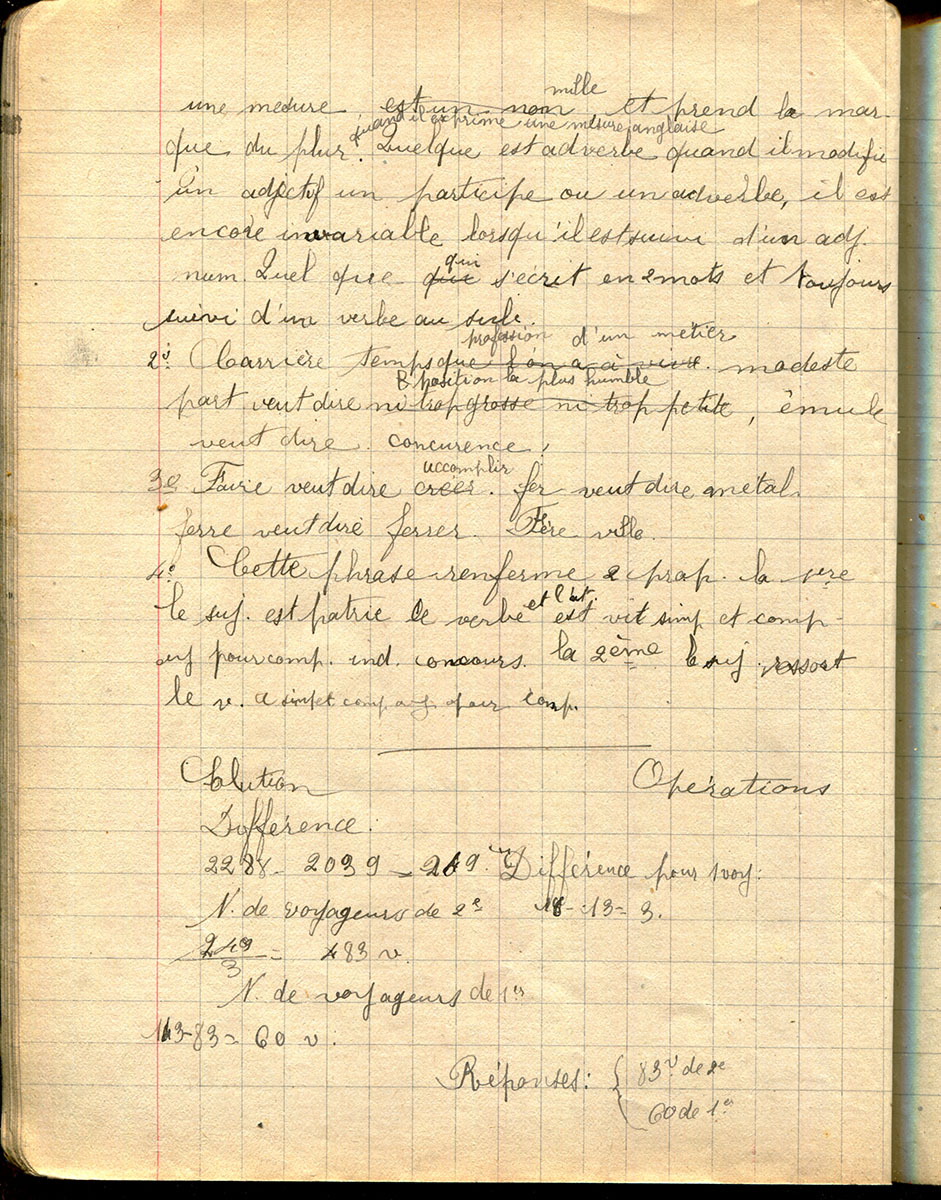 mille
une mesure est un nom et prend la mar-
quand il exprime une mesure anglaise
que du plur. Quelque est adverbe quand il modifie
un adjectif un participe ou un adverbe, il est
encore invariable lorsqu'il est suivi d'un adj.
qui
num. Quel que que s'écrit en 2 mots et toujours
suivi d'un verbe au
profession d'un métier
2° Carrière temps que l'on a à vivre. modeste
position la plus humble
part veut dire ni trop grosse ni trop petite, émule
veut dire concurence,
accomplir
3° Faire veut dire créer. fer veut dire métal.
ferre veut dire ferrer. Fère ville.
4° Cette phrase renferme 2 prop. la 1ère
et l'att.
le suj. est patrie le verbe est vit simp et comp-
pour comp. ind. concours. la 2ème le suj ressort
le v. a simp et comp a pour comp.
Solution Opérations
Différence:
2288 - 2039 = 249. Différence pour 1 voy:
N. de voyageurs de 2e 16 - 13 = 3.
249/3 = 83 v.
N. de voyageurs de 1er
143-83= 60 v.
Réponses: { 83 v de 2e
60 de 1e